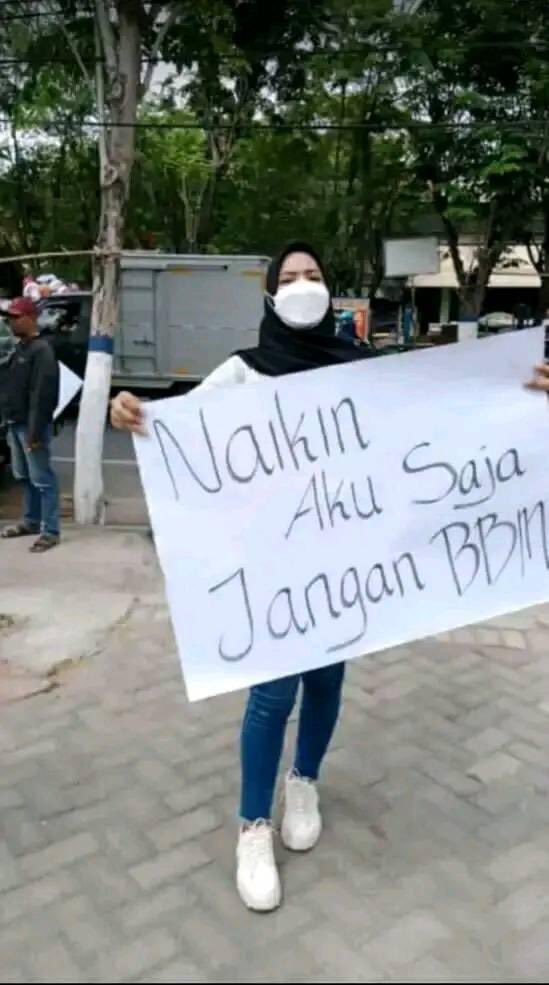 Naikin
Aku Saja
Jangan BBM